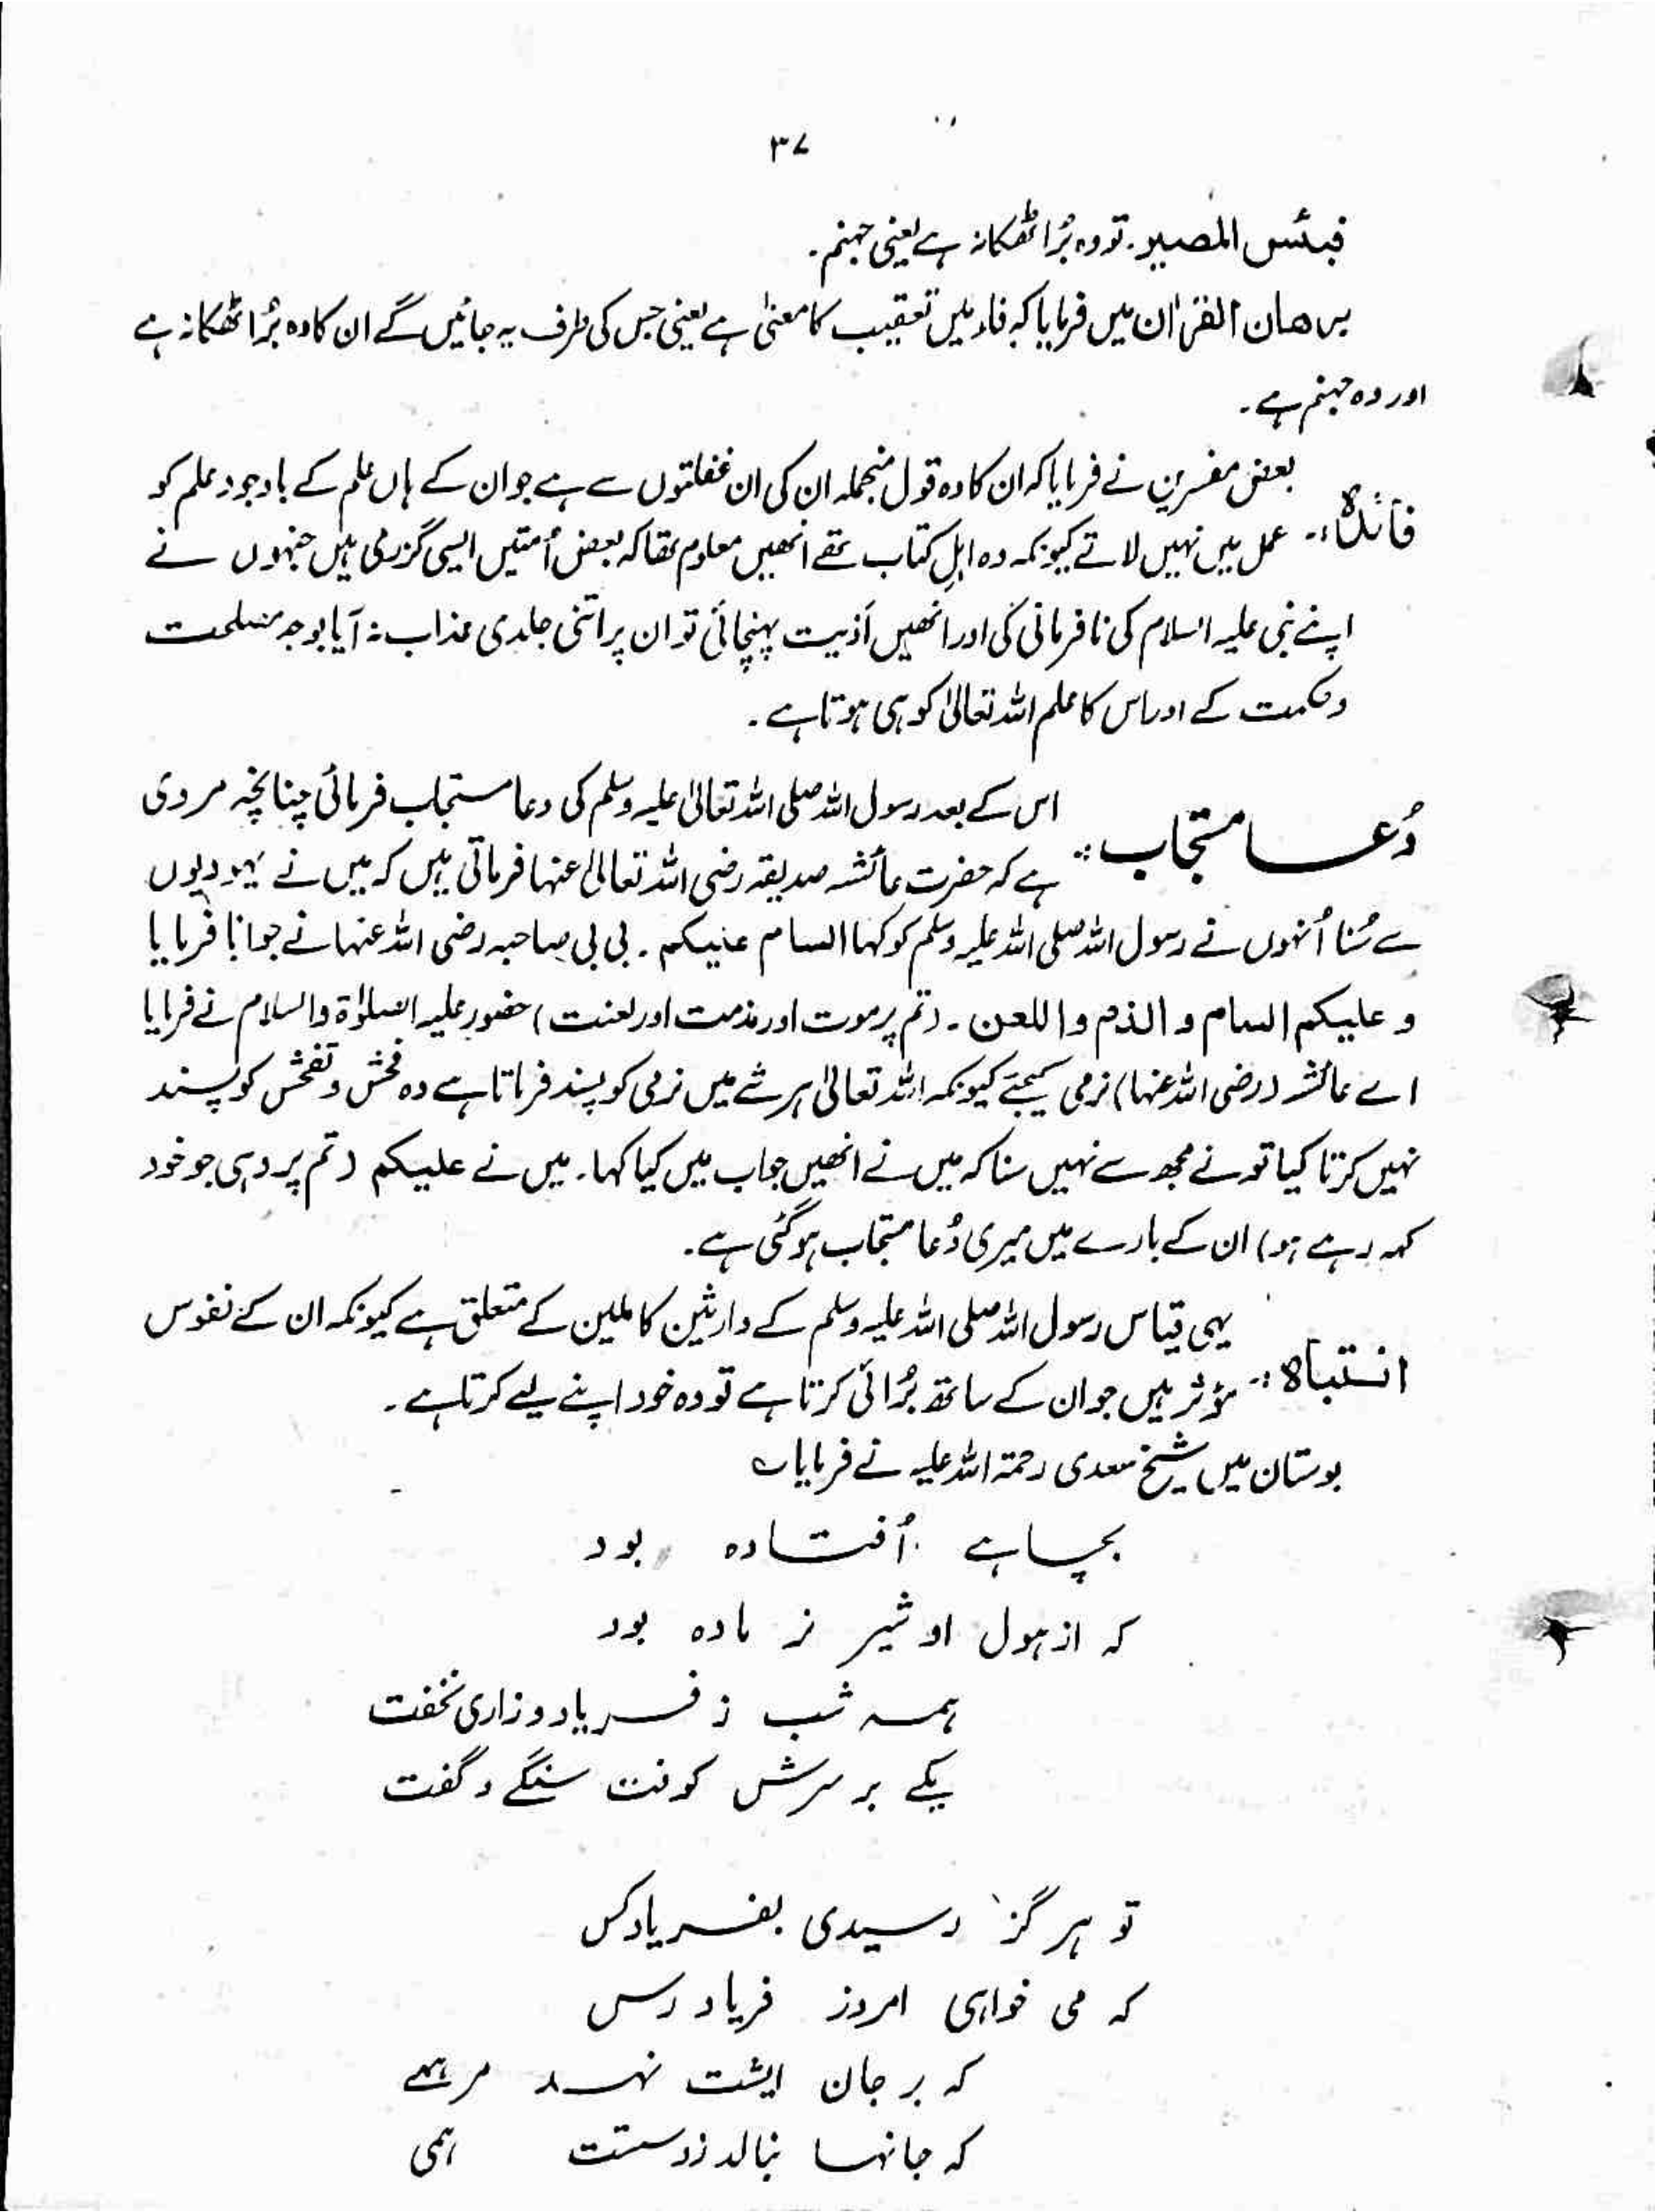 ۳۷
فبئس المصیر۔ تو وہ بُرا ٹھکانہ ہے یعنی جہنم۔
برھان القرآن میں فرمایا کہ فاء میں تعقیب کا معنیٰ ہے یعنی جس کی طرف یہ جائیں گے ان کا وہ بُرا ٹھکانہ ہے
اور وہ جہنم ہے۔
بعض مفسرین نے فرمایا کہ ان کا وہ قول منجملہ ان کی ان غفلتوں سے ہے جو ان کے ہاں علم کے باوجود علم کو
فائدہ:۔ عمل میں نہیں لاتے کیونکہ وہ اہلِ کتاب تھے انھیں معلوم تھا کہ بعض اُمتیں ایسی گزری ہیں جنہوں نے
اپنے نبی علیہ السلام کی نافرمانی کی اور انھیں اَذیت پہنچائی تو ان پر اتنی جلدی عذاب نہ آیا بوجہ مصلحت
و حکمت کے اور اس کا علم اللہ تعالیٰ کو ہی ہوتا ہے۔
اس کے بعد رسول اللہ صلی اللہ تعالیٰ علیہ وسلم کی دعا مستجاب فرمائی چنانچہ مروی
دُعا مستجاب:۔ ہے کہ حضرت عائشہ صدیقہ رضی اللہ تعالیٰ عنہا فرماتی ہیں کہ میں نے یہودیوں
سے سُنا اُنہوں نے رسول اللہ صلی اللہ علیہ وسلم کو کہا السام علیکم۔ بی بی صاحبہ رضی اللہ عنہا نے جواباً فرمایا
و علیکم السام و الذم و اللعن۔ (تم پر موت اور مذمت اور لعنت) حضور علیہ الصلوٰۃ والسلام نے فرمایا
اے عائشہ (رضی اللہ عنہا) نرمی کیجئے کیونکہ اللہ تعالیٰ ہر شے میں نرمی کو پسند فرماتا ہے وہ فحش و تفحش کو پسند
نہیں کرتا کیا تو نے مجھ سے نہیں سنا کہ میں نے انھیں جواب میں کیا کہا۔ میں نے علیکم (تم پر وہی جو خود
کہہ رہے ہو) ان کے بارے میں میری دُعا مستجاب ہو گئی ہے۔
یہی قیاس رسول اللہ صلی اللہ علیہ وسلم کے وارثین کاملین کے متعلق ہے کیونکہ ان کے نفوس
انتباہ:۔ مؤثر ہیں جو ان کے ساتھ بُرائی کرتا ہے تو وہ خود اپنے لیے کرتا ہے۔
بوستان میں شیخ سعدی رحمۃ اللہ علیہ نے فرمایا ؎
بچاہے اُفتادہ بود
کہ از ہول او شیر نر مادہ بود
ہمہ شب ز فریاد و زاری نخفت
یکے بر سرش کوفت سنگے و گفت
تو ہرگز رسیدی بفریاد کس
کہ می خواہی امروز فریاد رس
کہ بر جان ایشت نہد مرہمے
کہ جانہا بنالد ز دستت ہمی